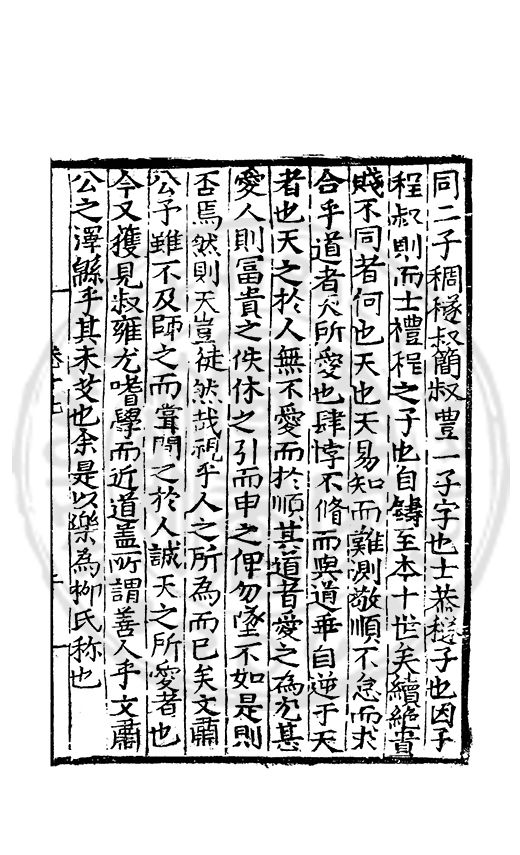 同二子稠穟叔簡叔豊一子字也士恭穟子也因子
程叔則而士禮程之子也自鑄至本十世矣續絶貴
賤不同者何也天也天易知而難測敬順不怠而求
合乎道者天所愛也肆悖不脩而與道乖自逆于天
者也天之於人無不愛而於順其道者愛之為尤甚
愛人則冨貴之佚休之引而申之俾勿墜不如是則
否焉然則天豈徒然哉視乎人之所為而已矣文肅
公予雖不及師之而甞聞之於人誠天之所愛者也
今又獲見叔雍尤嗜學而近道盖所謂善人乎文肅
公之澤緜乎其未艾也余是以樂為柳氏称也
卷十七